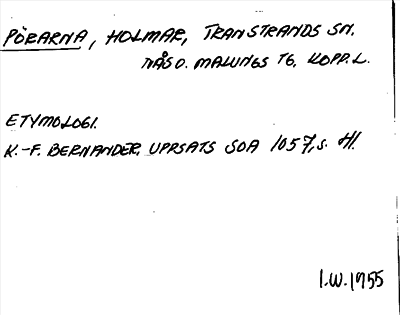 PÖRARNA, HOLMAR, TRANSTRANDS SN.
NÅS O. MALUNGS TG, KOPP. L.
ETYMOLOGI.
K.-F. BERNANDER, UPPSATS SOA 1057, s. 41.
I.W. 1955